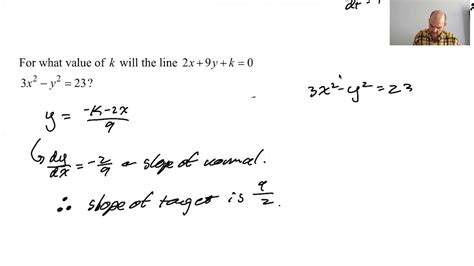 dt
For what value of k will the line 2x+9y+k=0
3x² − y² = 23?
3x² − y² = 23
y = (−k−2x)/9
dy/dx = −2/9 slope of normal.
∴ slope of target is 9/2.